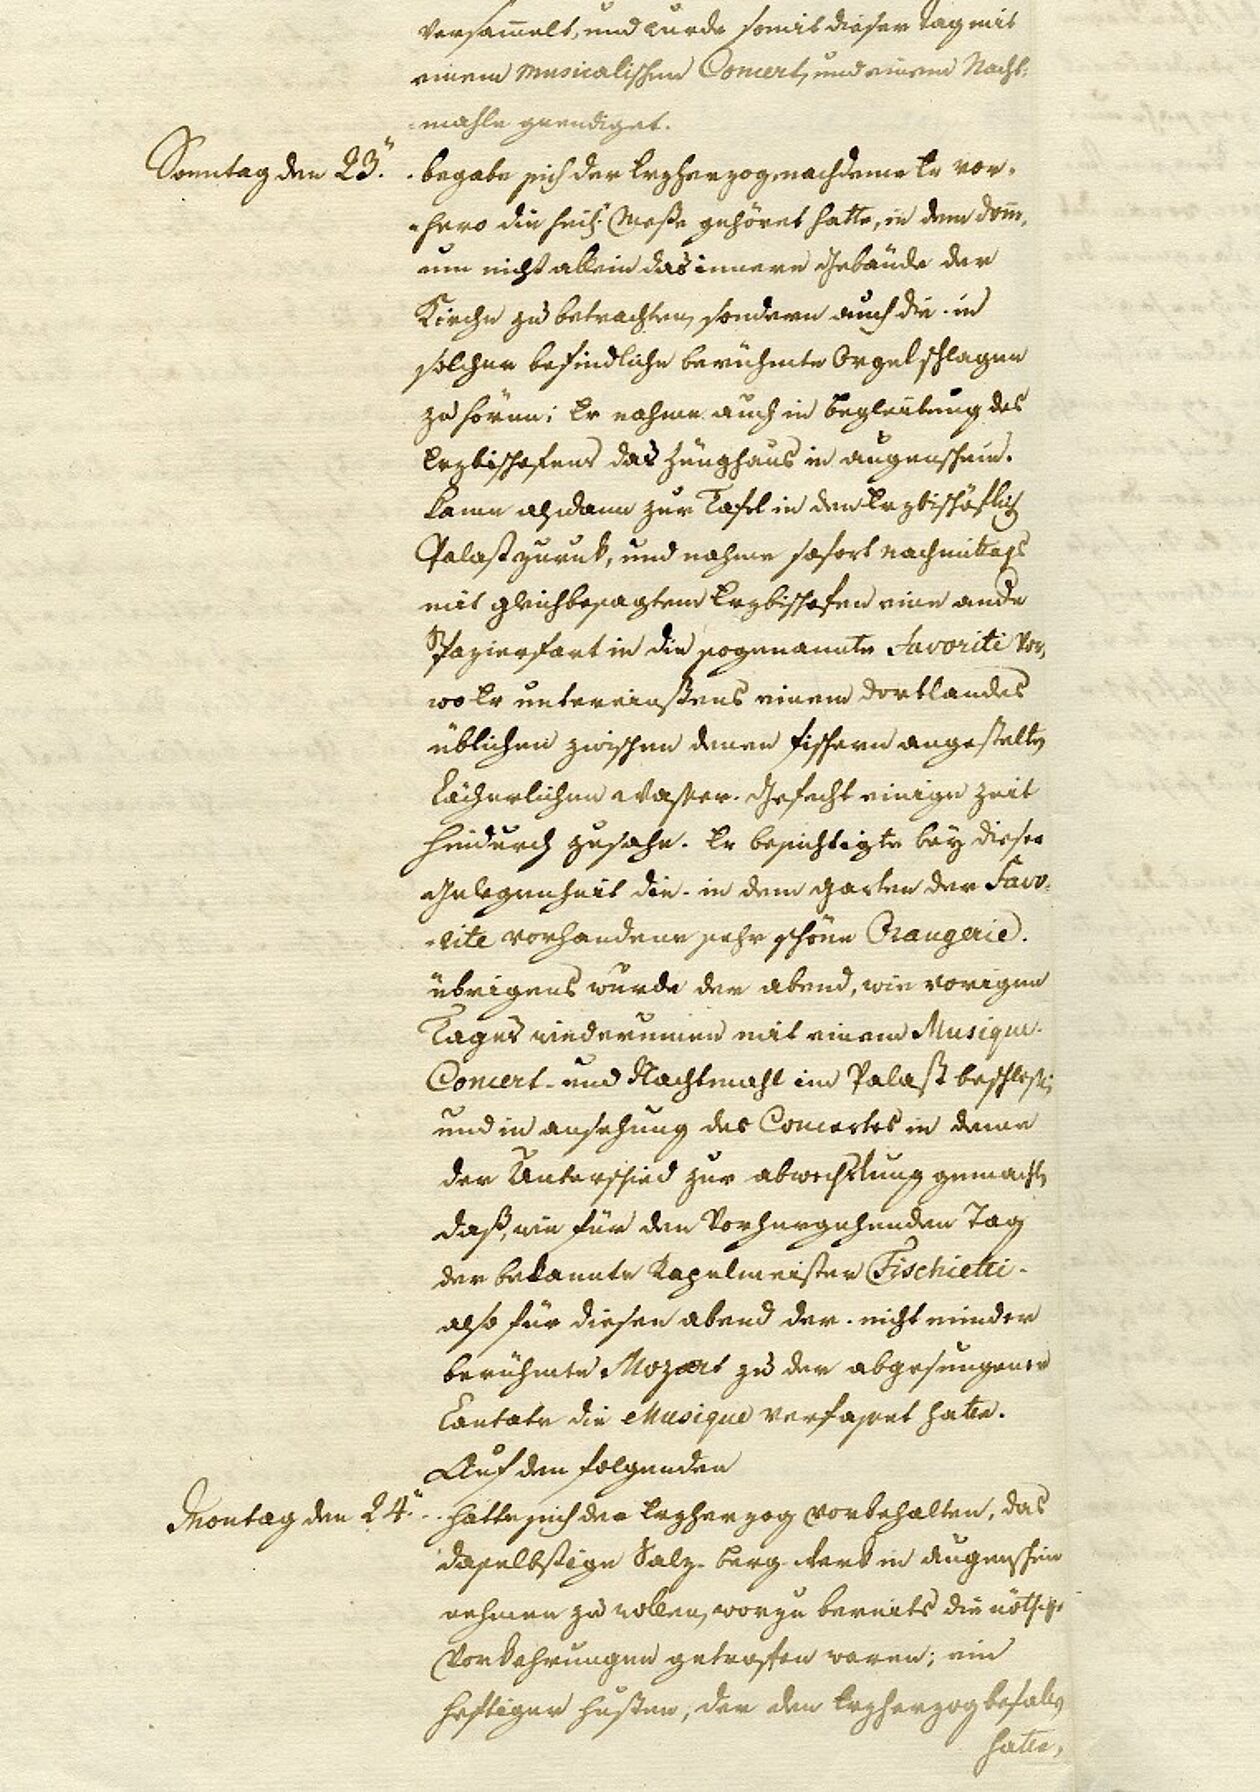 versam̄elt, und wurde somit dieser Tag mit
einem musicalischen Concert, und einem Nacht-
-mahle geendiget.
Sonntag den 23.ten begabe sich der Erzherzog, nachdeme Er vor-
-hero die heil: Messe gehöret hatte, in dem Dom̄,
um nicht allein das innere Gebäude der
Kirche zu betrachten, sondern auch die in
solcher befindliche berühmte Orgel schlagen
zu hören; Er nahme auch in Begleitung des
Erzbischofens das Zeüghaus in augenschein.
kame alsdann zur Tafel in den Erzbischöflich
Palast zuruk, und nahme sofort nachmittags
mit gleichbesagtem Erzbischofen eine
Spazierfart in die sogenannte Favoriti vor,
wo Er untereinstens einem dortlandes
üblichen zwischen denen fischern angestelten
lächerlichen Wasser-Gefecht einige Zeit
hindurch zusahe. Er besichtigte bey dieser
Gelegenheit die in dem Garten der Favo-
-rite vorhandene sehr schöne Orangerie.
übrigens wurde der abend, wie vorigen
Tages wiederummen mit einem Musique-
Concert- und Nachtmahl im Palast beschlossen,
und in ansehung des Concertes in deme
der Unterschied zur abwechslung gemacht,
daß, wie für den Vorhergehenden Tag
der bekannte Kapelmeister Fischietti-
also für diesen abend der nicht minder
berühmte Mozart zu der abgesungenen
Cantate die Musique verfasset hatte.
Auf den folgenden
Montag den 24.ten hatte sich der Erzherzog vorbehalten, das
daselbstige Salz-Berg-Werk in Augenschein
nehmen zu wollen, worzu bereits die nöthige
Vorkehrungen getroffen waren; ein
heftiger Husten, der den Erzherzog befallen
hatte,